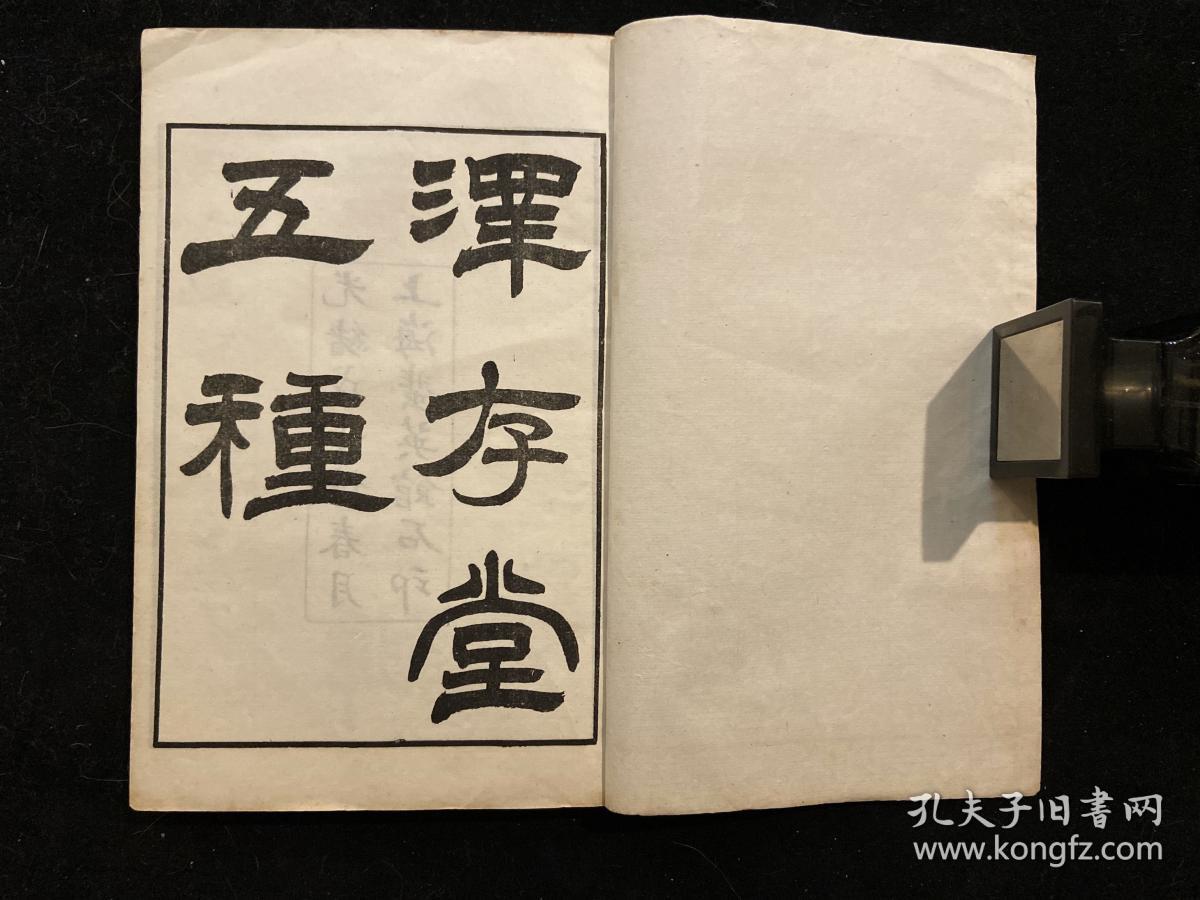 澤存堂
五種
上海蜚英館石印
光緒
春月
孔夫子旧書网
www.kongfz.com